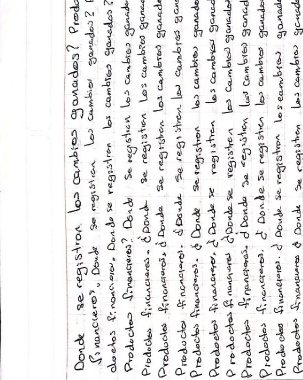 Donde se registran los cambios ganados? Produ
financieros. Donde se registran los cambios ganados? P
ductos financieros. Donde se registran los cambios ganados?
Productos financieros? Donde se registran los cambios ganado
Productos financieros. ¿Donde se registran los cambios ganado
Productos financieros. ¿Donde se registran los cambios ganado
Productos financieros. ¿Donde se registran los cambios ganad
Productos financieros. ¿Donde se registran los cambios ganado
Productos financieros. ¿Donde se registran los cambios ganado
Productos financieros ¿Donde se registran los cambios ganado
Productos financieros. ¿Donde se registran los cambios ganad
Productos financieros. ¿Donde se registran los cambios ganado
Productos financieros. ¿Donde se registran los cambios ganado
Productos financieros ¿Donde se registran los cambios ganado